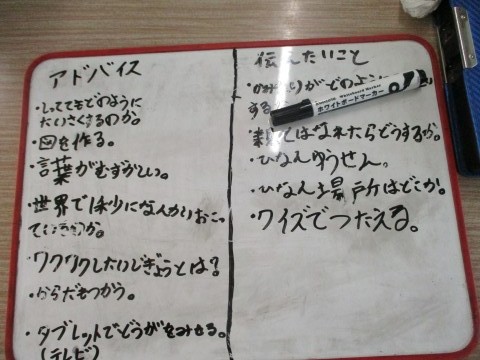 アドバイス
・しってもどのように
たいさくするのか。
・図を作る。
・言葉がむずかしい。
・世界で何かいおこっ
ているのか。
ワクワクしたいじぎょうとは?
・からだもつかう。
・タブレットでどうがをみせる。
(テレビ)
伝えたいこと
がどのように
する
家族とはなれたらどうするか。
・ひなんゆうせん。
・ひなん場所はどこか。
・クイズでつたえる。
ホワイトボードマーカー